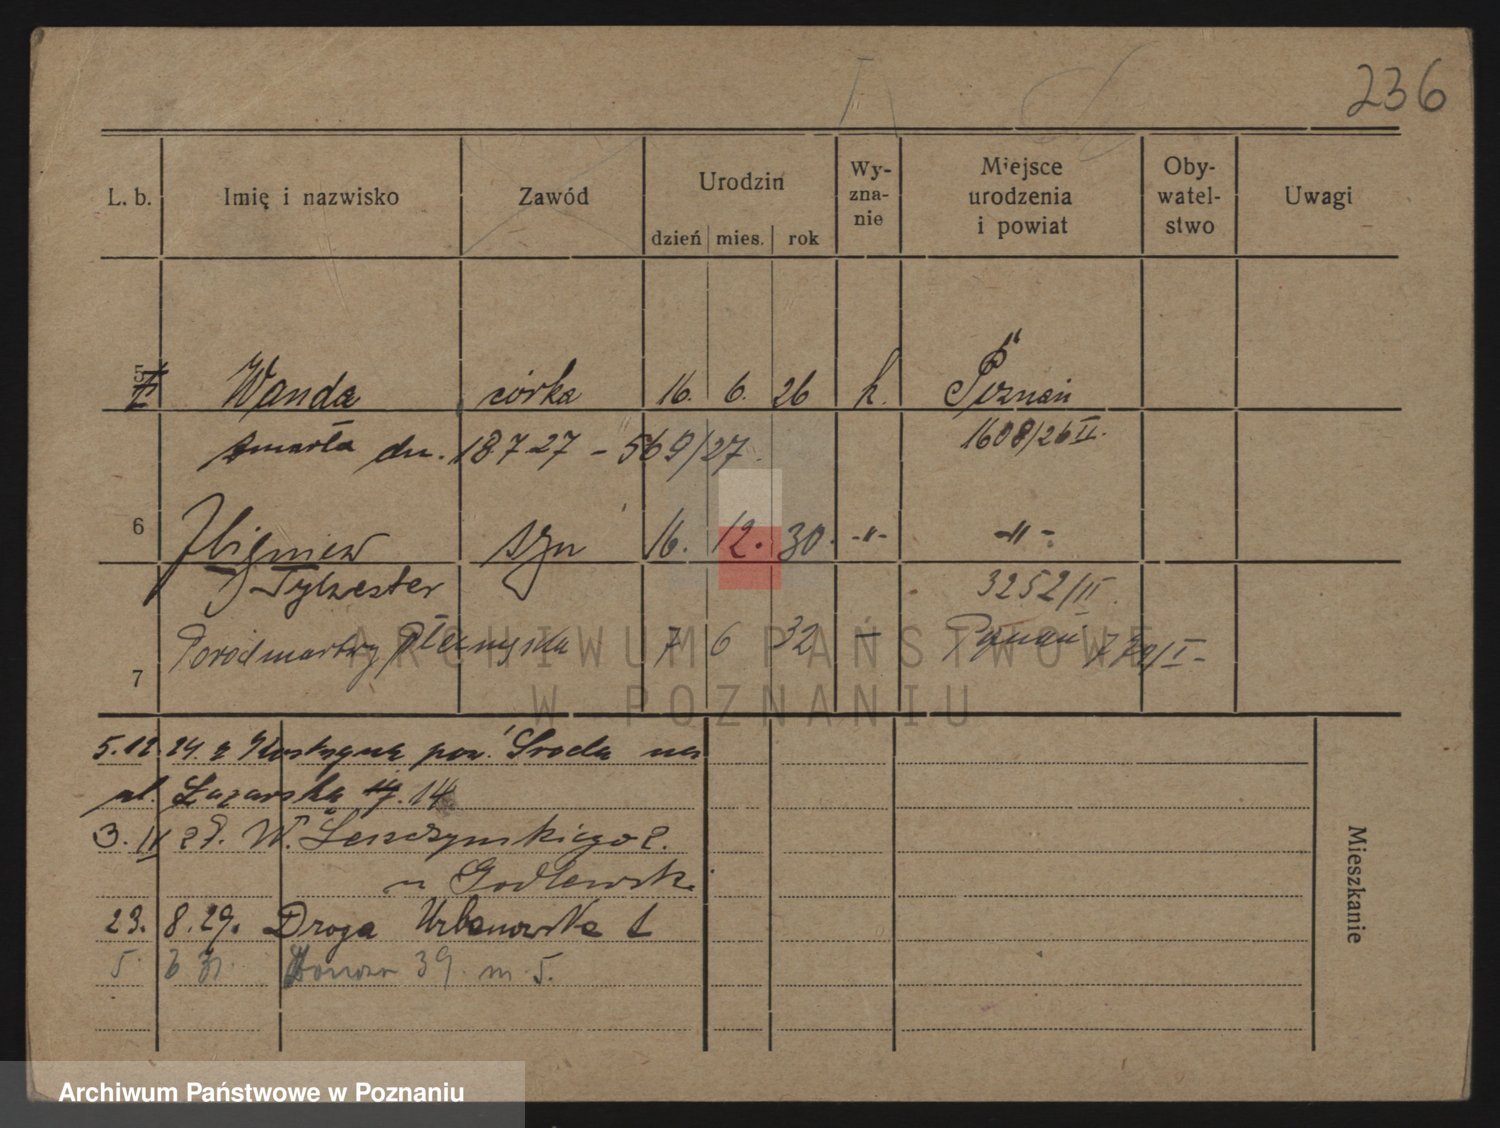 236
L. b. Imię i nazwisko Zawód Urodzin dzień mies. rok Wy-zna-nie Miejsce urodzenia i powiat Oby-watel-stwo Uwagi
5 Wanda córka 16. 6. 26 k. Poznań
zmarła dn. 18 7 27 - 569/27. 1608/26 II.
6 Zbigniew syn 16. 12. 30. -"- -"-
Sylwester 3252/II
7 Poród martwy płci męska 7 6 32 - Poznań
ARCHIWUM PAŃSTWOWE
W POZNANIU
5.12.24. z Kostrzyna pow. Środa na
ul. Łazarską 14
3. II 27. W. Leszczyńskiego 2.
u Godlewsk.
23. 8. 29. Droga Urbanowska 1
5. 39. m. 5.
Mieszkanie
Archiwum Państwowe w Poznaniu